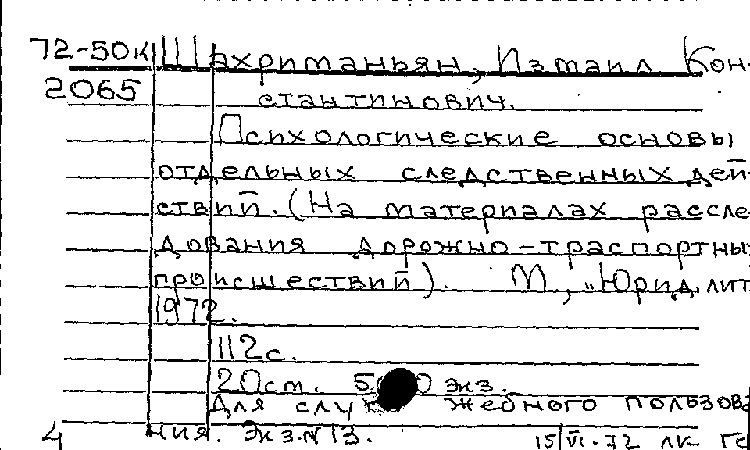 72-50к Шахриманьян, Измаил Кон-
2065 стантинович.
Психологические основы
отдельных следственных дей-
ствий. (На материалах рассле
дования дорожно-траспортны
происшествий). М., „Юрид. лит
1972.
112 с.
20 см. экз.
Для служебного пользова
4 ния. Экз. N 13. 15/VI-72 ЛК